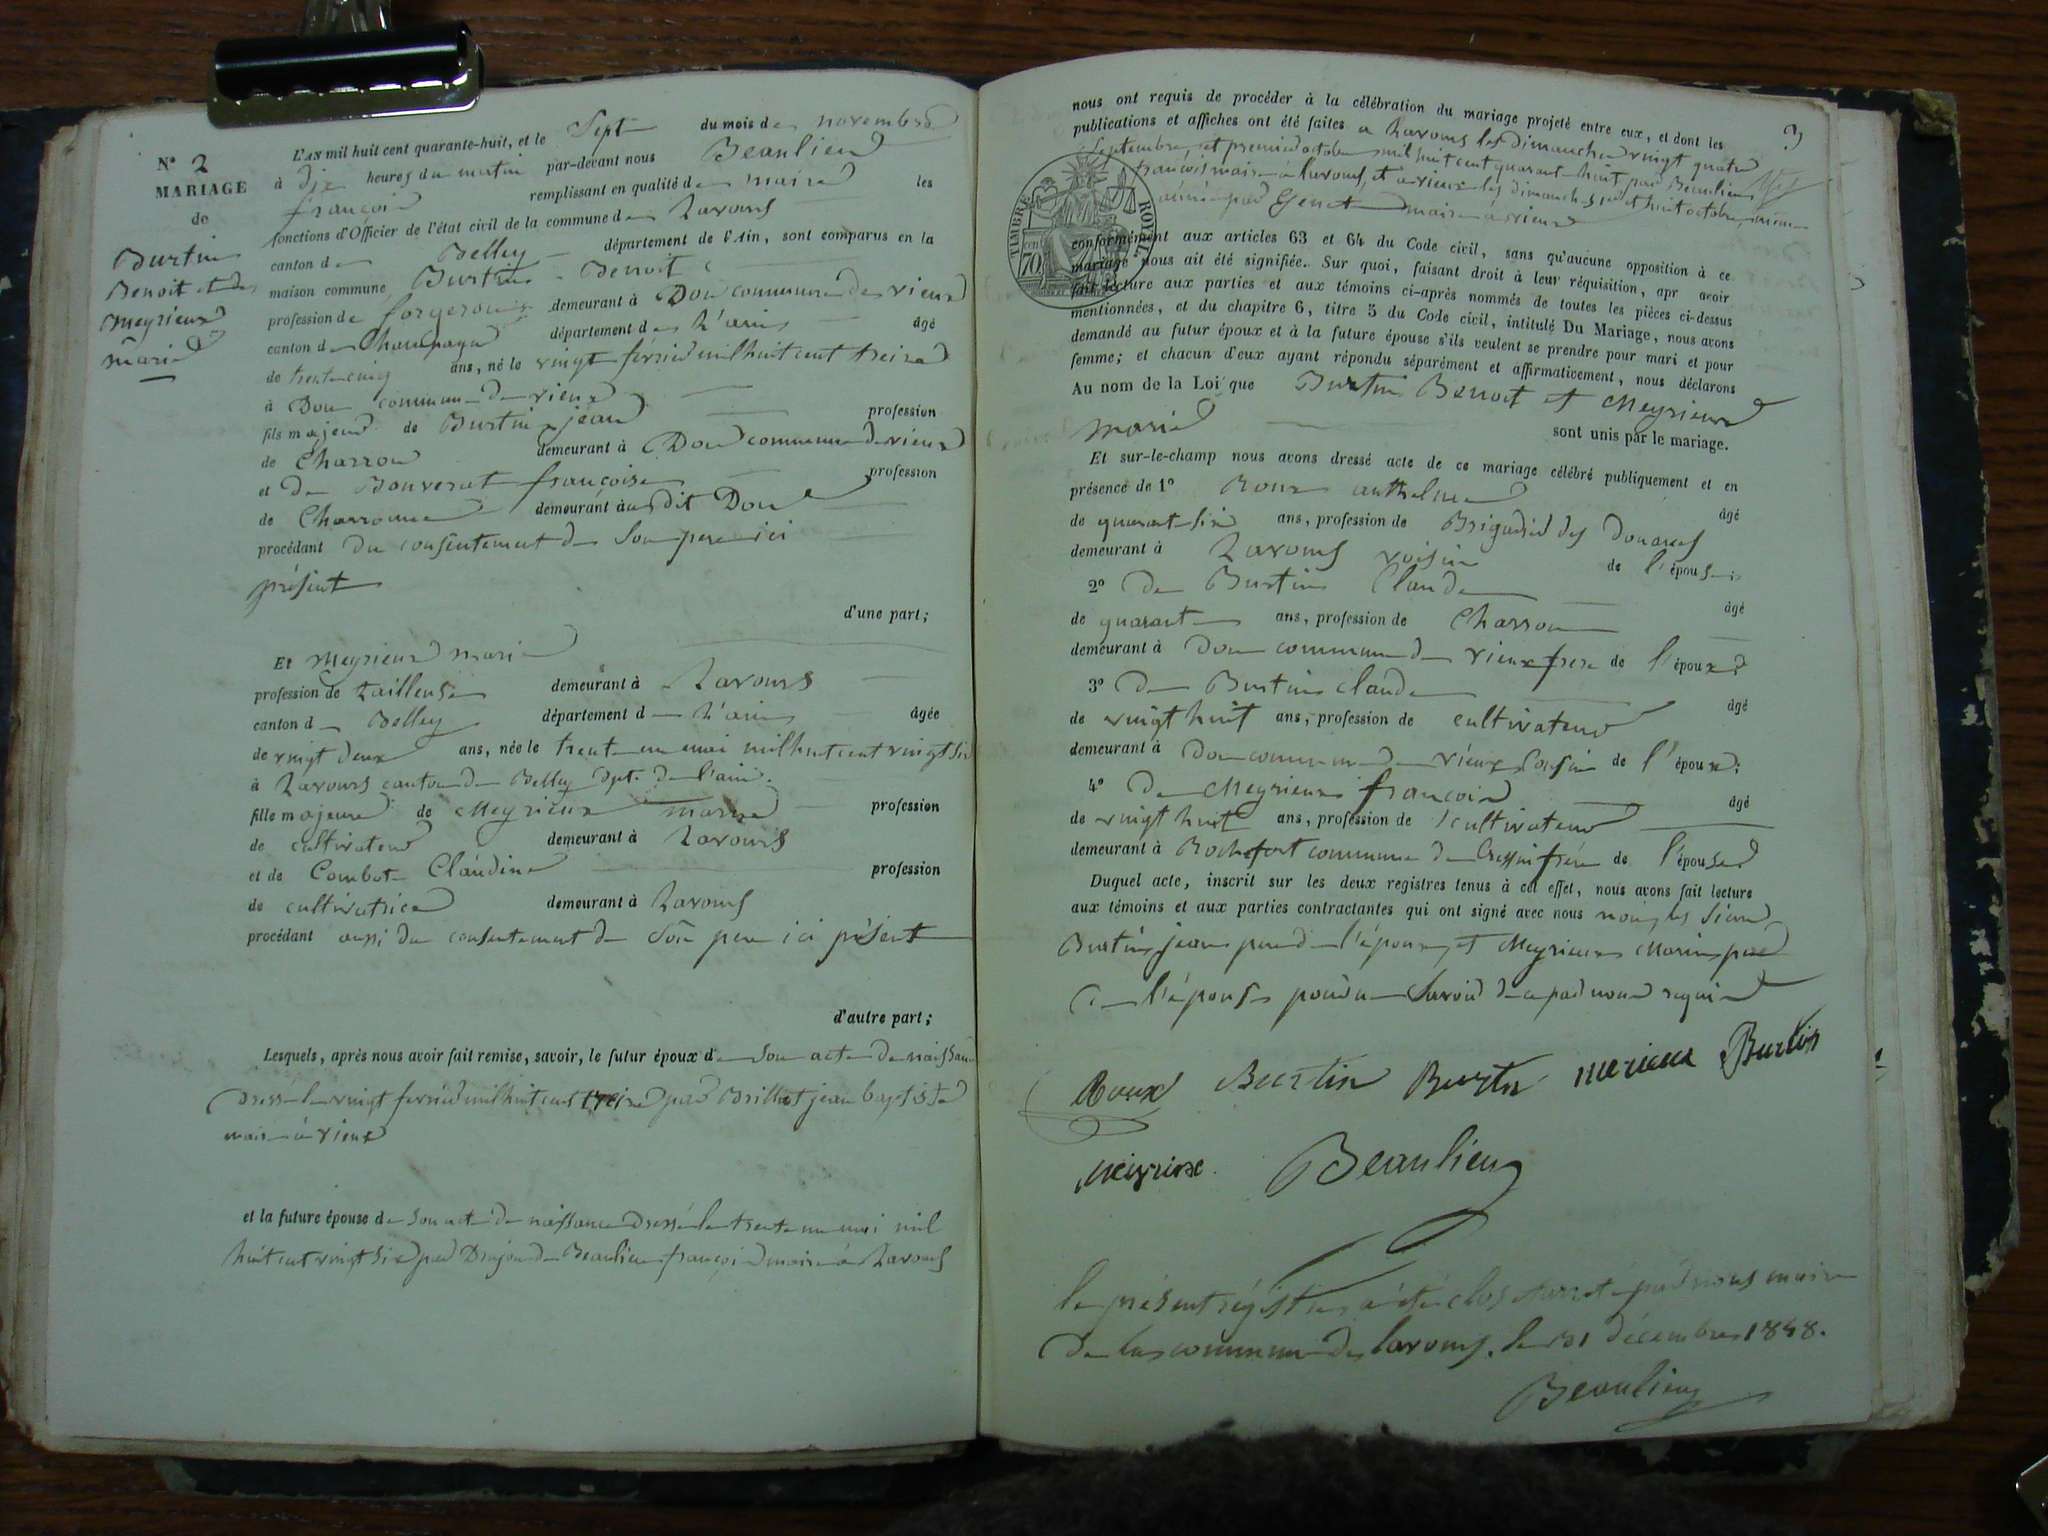 N° 2
MARIAGE
de
Burtin
Benoit et de
Meyrieux
marie
L'AN mil huit cent quarante-huit, et le Sept du mois de novembre
à dix heures du matin par-devant nous Beaulieu
françois remplissant en qualité de maire les
fonctions d'Officier de l'état civil de la commune de Lavours
canton de Belley département de l'Ain, sont comparus en la
maison commune Burtin Benoit
profession de forgeron demeurant à Don commune de vieux
canton de Champagne département de L'ain âgé
de trente cinq ans, né le vingt février mil huit cent treize
à Don commune de vieux
fils majeur de Burtin jean profession
de Charron demeurant à Don commune de vieux
et de Bonverat françoise profession
de Charronne demeurant audit Don
procédant du consentement de Son pere ici
présent
d'une part;
Et Meyrieux marie
profession de tailleuse demeurant à Lavours
canton de Belley département de L'ain âgée
de vingt deux ans, née le trente un mai mil huit cent vingt six
à Lavours canton de Belley dpt. de l'ain.
fille majeure de Meyrieux profession
de cultivateur demeurant à Lavours
et de Combet Claudine profession
de cultivatrice demeurant à Lavours
procédant aussi du consentement de Son pere ici présent
d'autre part;
Lesquels, après nous avoir fait remise, savoir, le futur époux de son acte de naissance
Dressé le vingt février mil huit cent treize par Brillat jean baptiste
maire à vieux
et la future épouse de son acte de naissance Dressé le trente un mai mil
huit cent vingt six par Dujon de Beaulieu françois maire à Lavours
3
nous ont requis de procéder à la célébration du mariage projeté entre eux, et dont les
publications et affiches ont été faites a Lavours les dimanches vingt quatre
Septembre et premier octobre mil huit cent quarante huit par Beaulieu
françois maire à lavours et a vieux les dimanches 1er et huit octobre
par Genet maire à vieux
TIMBRE ROYAL
70
conformément aux articles 63 et 64 du Code civil, sans qu'aucune opposition à ce
mariage nous ait été signifiée. Sur quoi, faisant droit à leur réquisition, apr avoir
fait lecture aux parties et aux témoins ci-après nommés de toutes les pièces ci-dessus
mentionnées, et du chapitre 6, titre 5 du Code civil, intitulé Du Mariage, nous avons
demandé au futur époux et à la future épouse s'ils veulent se prendre pour mari et pour
femme; et chacun d'eux ayant répondu séparément et affirmativement, nous déclarons
Au nom de la Loi que Burtin Benoit et Meyrieux
marie sont unis par le mariage.
Et sur-le-champ nous avons dressé acte de ce mariage célébré publiquement et en
présence de 1° Roux anthelme âgé
de quarante six ans, profession de Brigadier des Douanes
demeurant à Lavours voisin de l'épouse
2° De Burtin Claude âgé
de quarante ans, profession de Charron
demeurant à Don commune de vieux frere de l'époux
3° De Burtin claude âgé
de vingt huit ans, profession de cultivateur
demeurant à Don commune de vieux Cousin de l'époux;
4° De Meyrieux françois âgé
de vingt huit ans, profession de cultivateur
demeurant à Rochefort commune de Cressin frère de l'épouse
Duquel acte, inscrit sur les deux registres tenus à cet effet, nous avons fait lecture
aux témoins et aux parties contractantes qui ont signé avec nous non les Sieurs
Burtin jean pere de l'époux, et Meyrieux pere
de l'épouse pour ne Savoir de ce par nous requis
Roux Burtin Burtin merieux Burtin
Beaulieu
le présent régistre a été clos arreté par nous maire
de la commune de lavours. le 31 décembre 1848.
Beaulieu